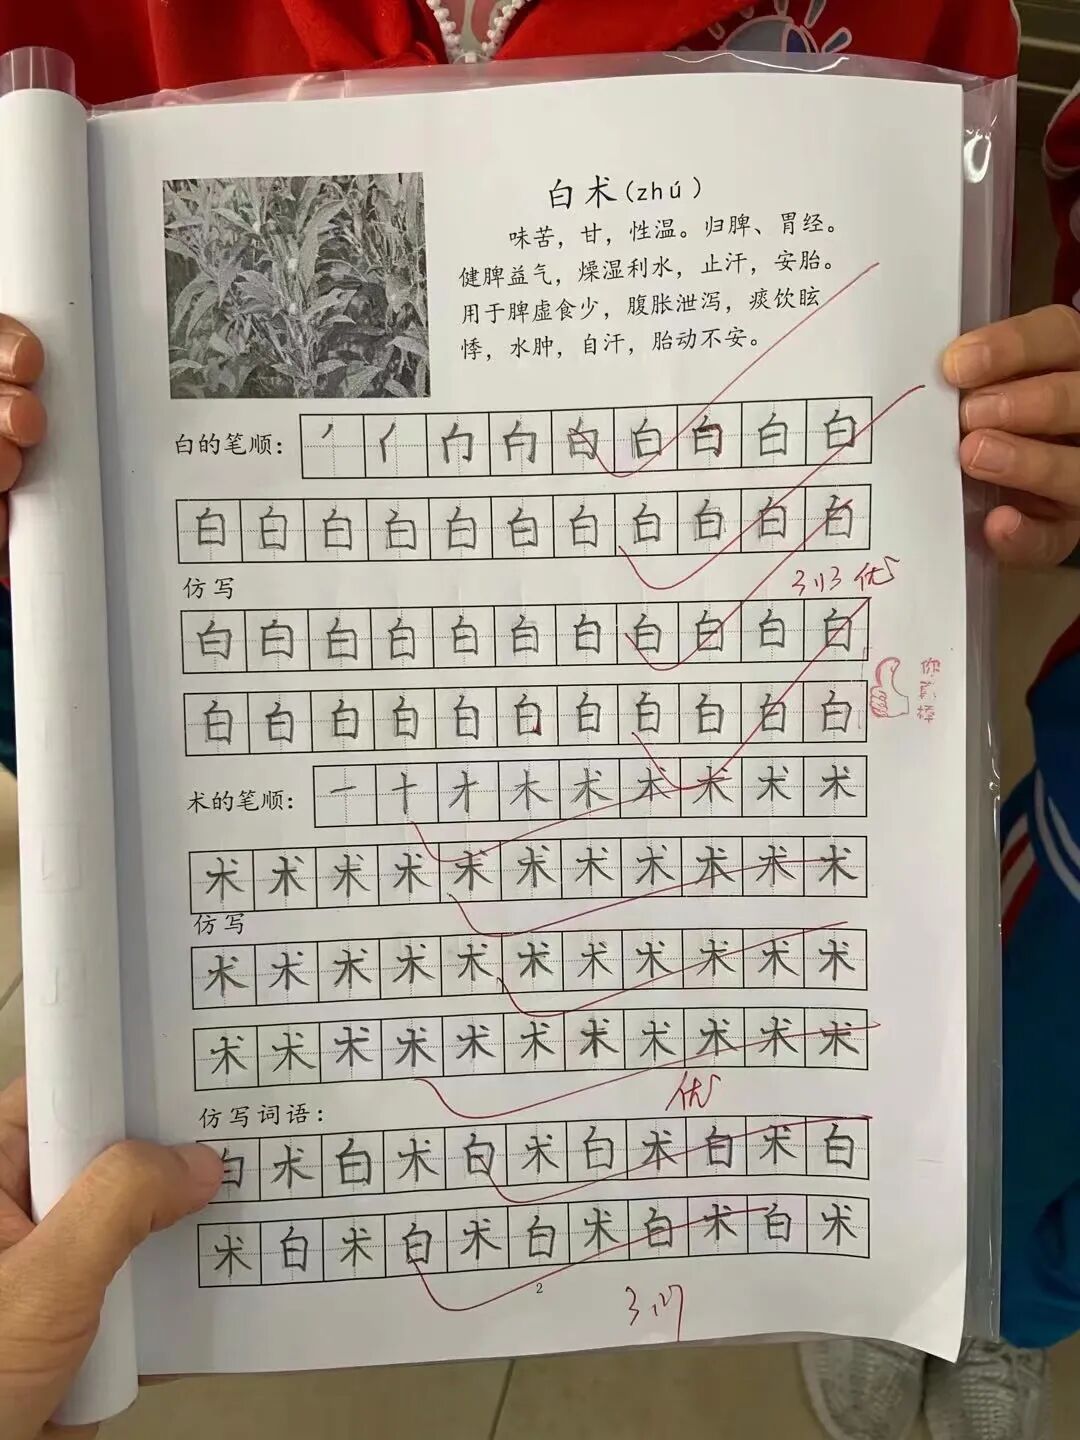 白术(zhú)
味苦，甘，性温。归脾、胃经。
健脾益气，燥湿利水，止汗，安胎。
用于脾虚食少，腹胀泄泻，痰饮眩
悸，水肿，自汗，胎动不安。
白的笔顺：白 白 白 白 白
白 白 白 白 白 白 白 白 白 白 白
仿写
3.13 优
白 白 白 白 白 白 白 白 白 白 白
你真棒
白 白 白 白 白 白 白 白 白 白 白
术的笔顺：一 十 才 木 术 术 术 术 术
术 术 术 术 术 术 术 术 术 术 术
仿写
术 术 术 术 术 术 术 术 术 术 术
术 术 术 术 术 术 术 术 术 术 术
优
仿写词语：
白 术 白 术 白 术 白 术 白 术 白
术 白 术 白 术 白 术 白 术 白 术
2